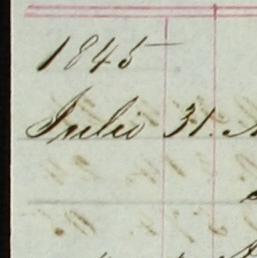 1845
Julio 31.